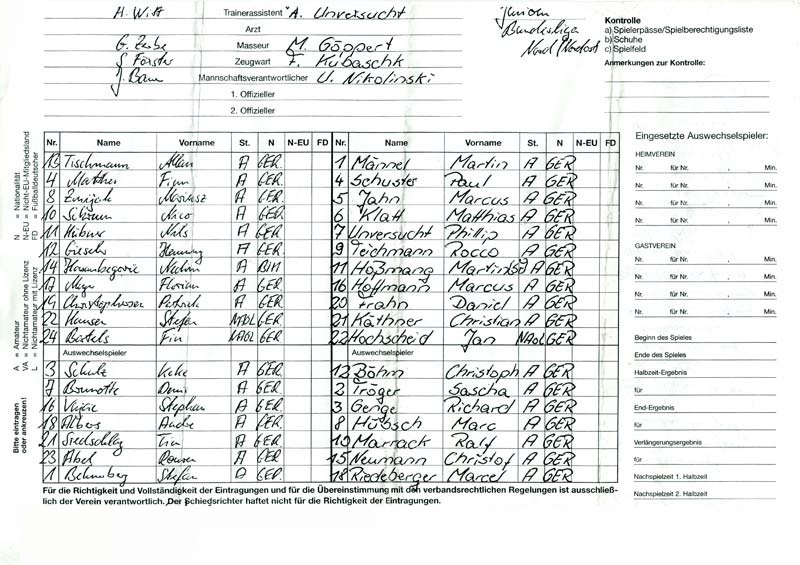 H. W.
Trainerassistent A. Unversucht
Arzt
G. Zerbe Masseur M. Göppert
J. Förster Zeugwart F. Kubaschk
Mannschaftsverantwortlicher U. Nikolinski
1. Offizieller
2. Offizieller
Junioren
Bundesliga
Nord/Nordost
Kontrolle
a) Spielerpässe/Spielberechtigungsliste
b) Schuhe
c) Spielfeld
Anmerkungen zur Kontrolle:
Nr. Name Vorname St. N N-EU FD
13 Tischmann Allan A GER.
4 Matthes Finn A GER.
8 A GER.
10 Nico A GER.
11 Hübner Nils A GER.
12 Henning A GER.
14 A BIH
17 Florian A GER.
19 Christophersen Patrick A GER.
22 Hansen Stefan NAOL GER.
24 Bartels Fin NAOL GER.
Auswechselspieler
3 Schulz A GER.
7 Brunotte Denis A GER.
16 Stephan A GER.
18 Albers Andre A GER.
21 Siedschlag Tim A GER.
23 Abel A GER.
1 Stefan A GER.
Nr. Name Vorname St. N N-EU FD
1 Männel Martin A GER
4 Schuster Paul A GER
5 Jahn Marcus A GER
6 Klatt Matthias A GER
7 Unversucht Phillip A GER
9 Teichmann Rocco A GER
11 Hoßmang A GER
16 Hoffmann Marcus A GER
20 Frahn Daniel A GER
21 Käthner Christian A GER
22 Hochscheid Jan NAOL GER
Auswechselspieler
12 Böhm Christoph A GER
2 Tröger Sascha A GER
3 Genge Richard A GER
8 Hübsch Marc A GER
10 Marrack Ralf A GER
15 Neumann Christof A GER
18 Riedeberger Marcel A GER
Für die Richtigkeit und Vollständigkeit der Eintragungen und für die Übereinstimmung mit den verbandsrechtlichen Regelungen ist ausschließ-
lich der Verein verantwortlich. Der Schiedsrichter haftet nicht für die Richtigkeit der Eintragungen.
N = Nationalität
N-EU = Nicht-EU-Mitgliedsland
FD = Fußballdeutscher
A = Amateur
VA = Nichtamateur ohne Lizenz
L = Nichtamateur mit Lizenz
Bitte eintragen
oder ankreuzen!
Eingesetzte Auswechselspieler:
HEIMVEREIN
Nr. für Nr. , Min.
Nr. für Nr. , Min.
Nr. für Nr. , Min.
Nr. für Nr. , Min.
GASTVEREIN
Nr. für Nr. , Min.
Nr. für Nr. , Min.
Nr. für Nr. , Min.
Nr. für Nr. , Min.
Beginn des Spieles
Ende des Spieles
Halbzeit-Ergebnis
für
End-Ergebnis
für
Verlängerungsergebnis
für
Nachspielzeit 1. Halbzeit
Nachspielzeit 2. Halbzeit